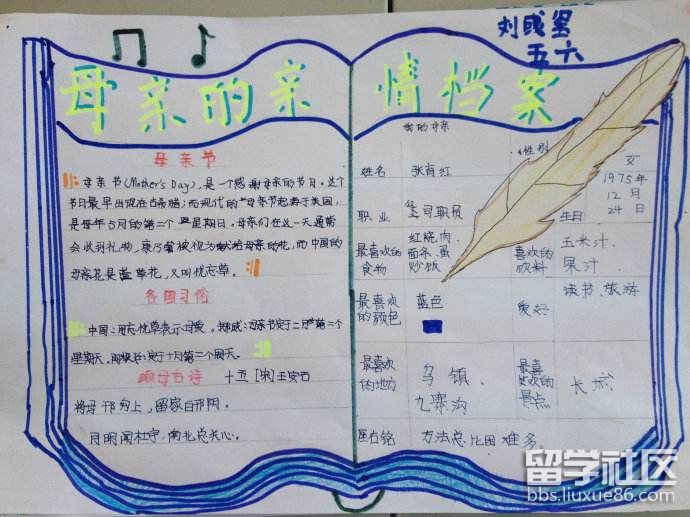 刘彧墨
五六
母亲的亲
情档案
母亲节
母亲节(Mother's Day),是一个感谢母亲的节日。这个
节日最早出现在古希腊;而现代的母亲节起源于美国,
是每年5月的第二个星期日。母亲们在这一天通常
会收到礼物,康乃馨被视为献给母亲的花,而中国的
母亲花是萱草花,又叫忧忘草。
各国习俗
中国:用忘忧草表示母爱。挪威:母亲节定于二月第二个
星期天。阿根廷:定于十月第二个周天。
颂母古诗
十五 [宋] 王安石
将母邗沟上,留家白邗阴。
月明闻杜宇,南北总关心。
我的母亲
姓名 张育红 性别 女
职业 公司职员 生日 1975年
12月
24日
最喜欢的食物 红烧肉、
面条、蛋
炒饭
喜欢的饮料 玉米汁、
果汁
最喜欢的颜色 蓝色
爱好 读书、旅游
最喜欢的地方 乌镇、
九寨沟
最喜欢的景点 长城
座右铭 方法总比困难多。
留学社区
bbs.liuxue86.com